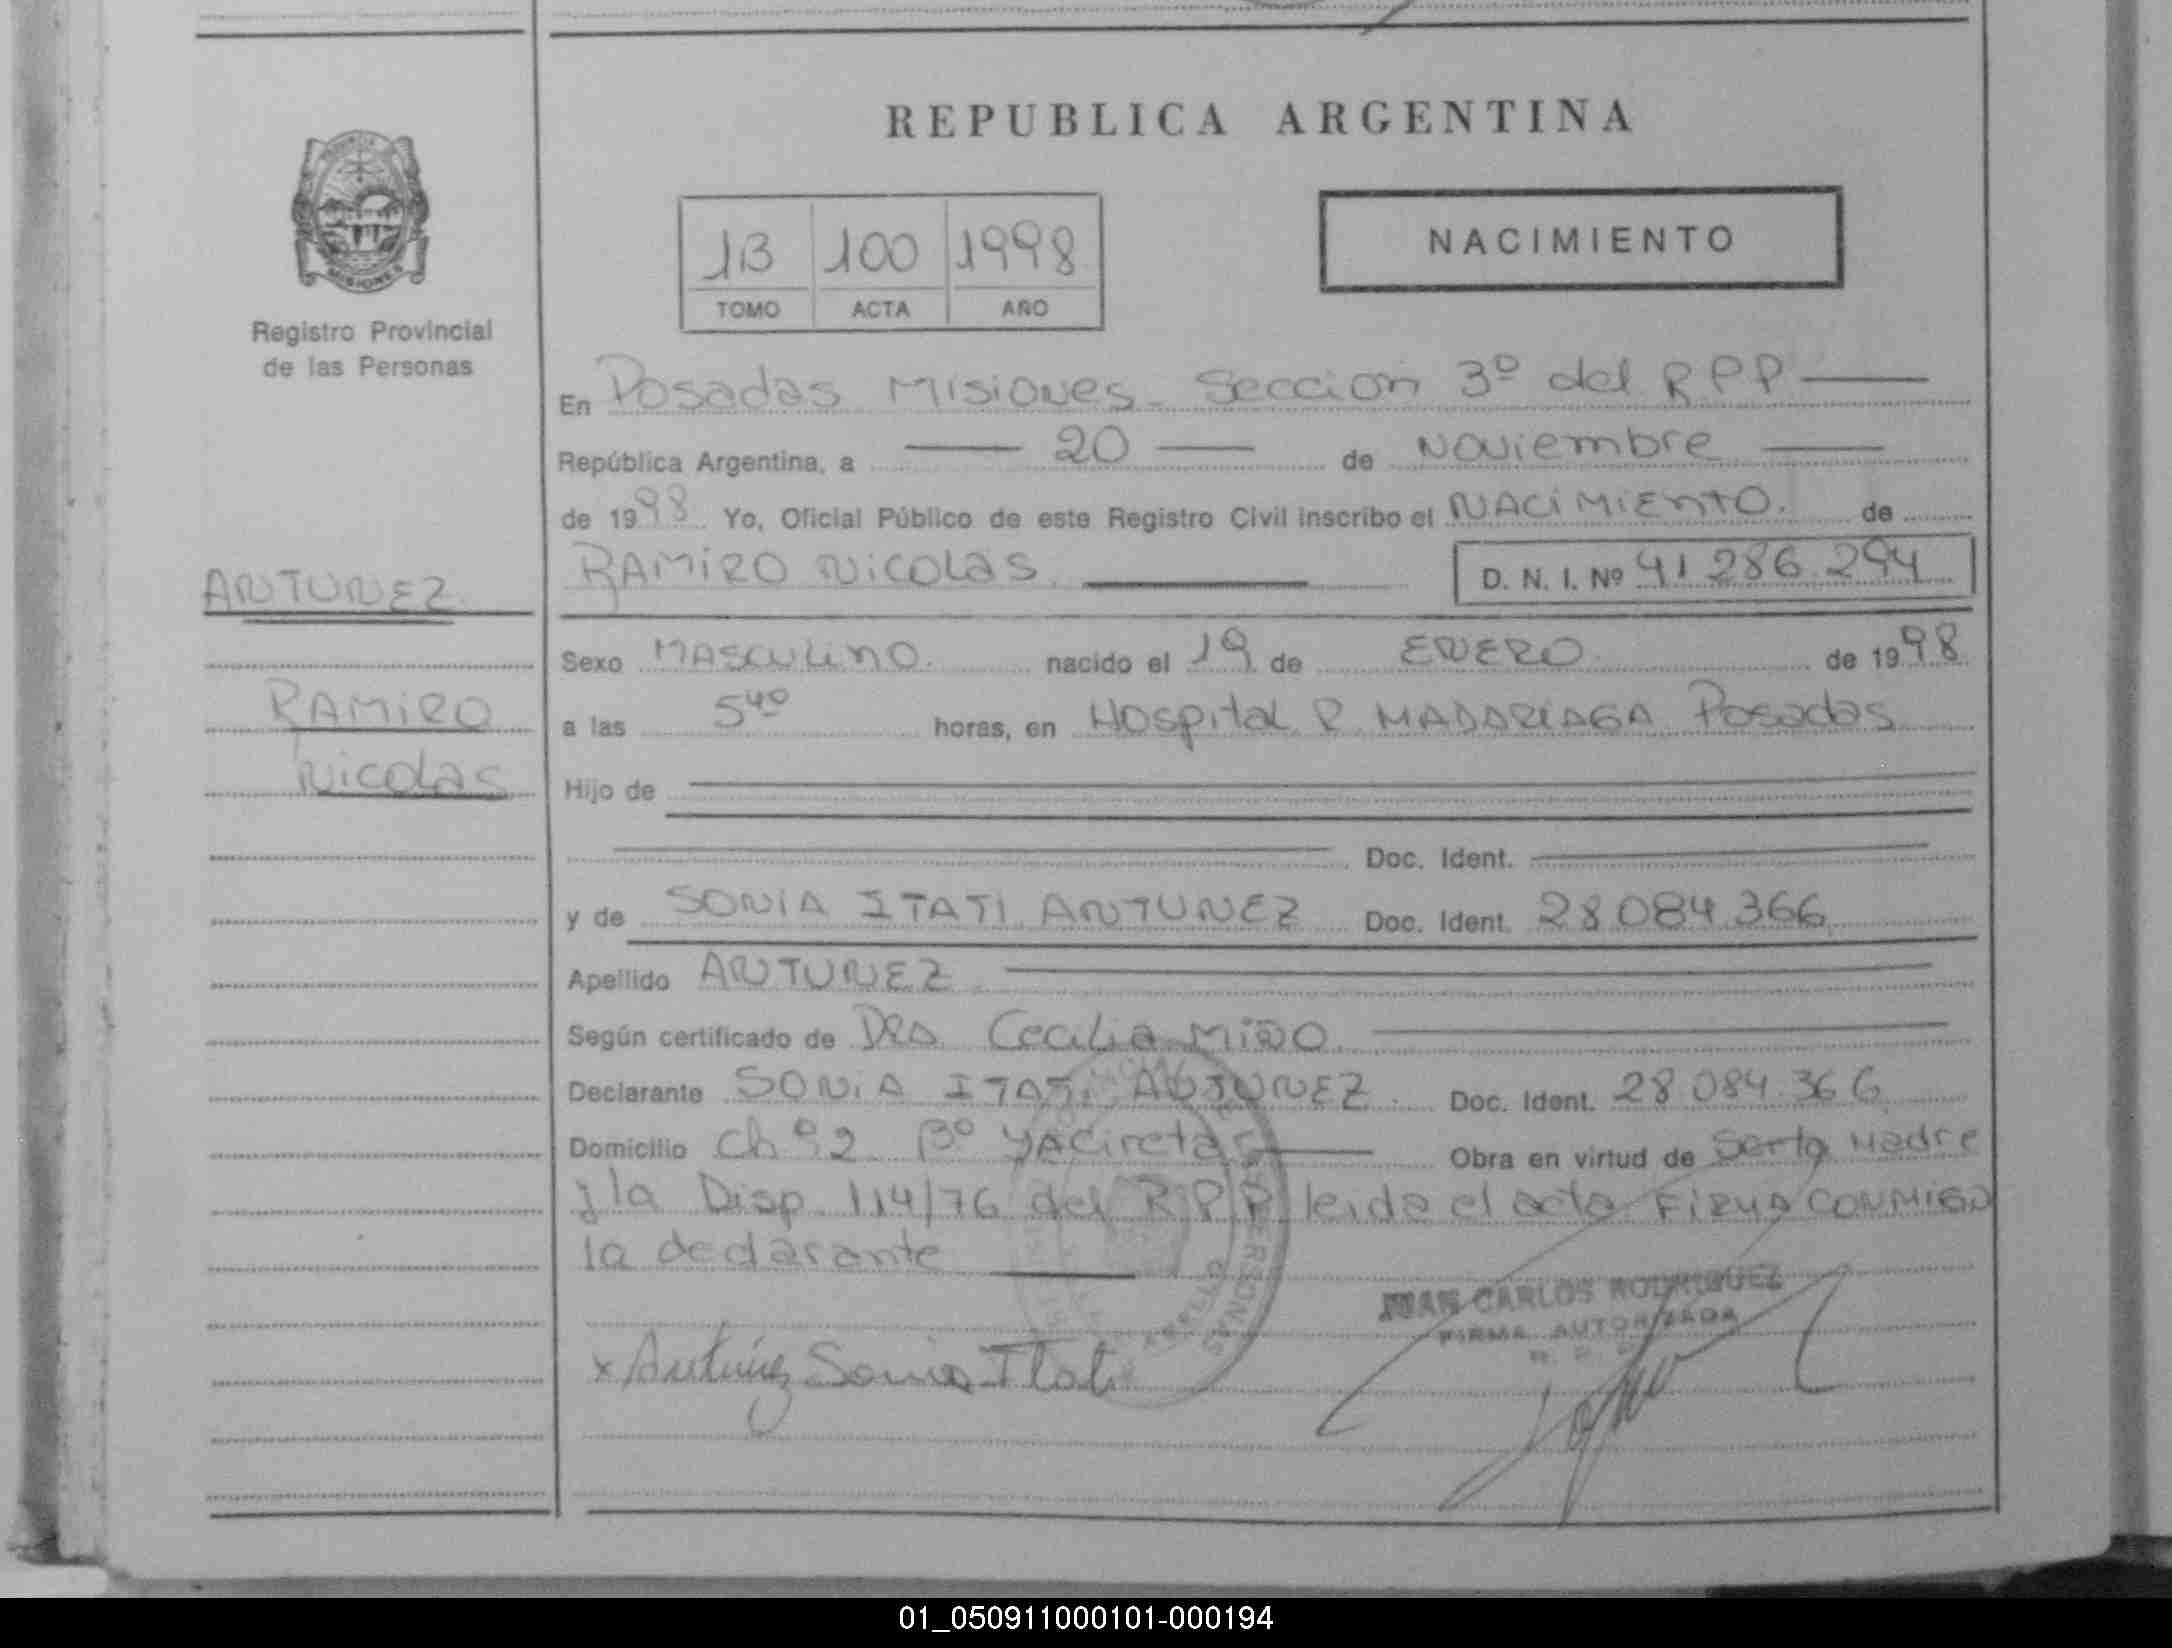 REPUBLICA ARGENTINA
MISIONES
Registro Provincial
de las Personas
1B 100 1998
TOMO ACTA AÑO
NACIMIENTO
En Posadas Misiones - Sección 3º del RPP
República Argentina, a 20 de Noviembre
de 1998 Yo, Oficial Público de este Registro Civil inscribo el NACIMIENTO. de
RAMIRO NICOLAS. D. N. I. Nº 41.286.294
ANTUNEZ
Sexo MASCULINO. nacido el 19 de ENERO de 1998
RAMIRO
a las 5 40 horas, en Hospital R. MADARIAGA Posadas
NICOLAS
Hijo de
Doc. Ident.
y de SONIA ITATI ANTUNEZ Doc. Ident. 28.084.366
Apellido ANTUNEZ
Según certificado de Dra. Cecilia MIÑO
Declarante SONIA ITATI ANTUNEZ Doc. Ident. 28.084.366
Domicilio Ch º 2 Bº YACIRETA Obra en virtud de Serta Madre
y la Disp. 114/76 del R P P leida el acta FIRMA CONMIGO
la declarante
PERSONAS
JUAN CARLOS RODRIGUEZ
FIRMA AUTORIZADA
R. P. P.
x Antúnez Sonia Itati
01_050911000101-000194